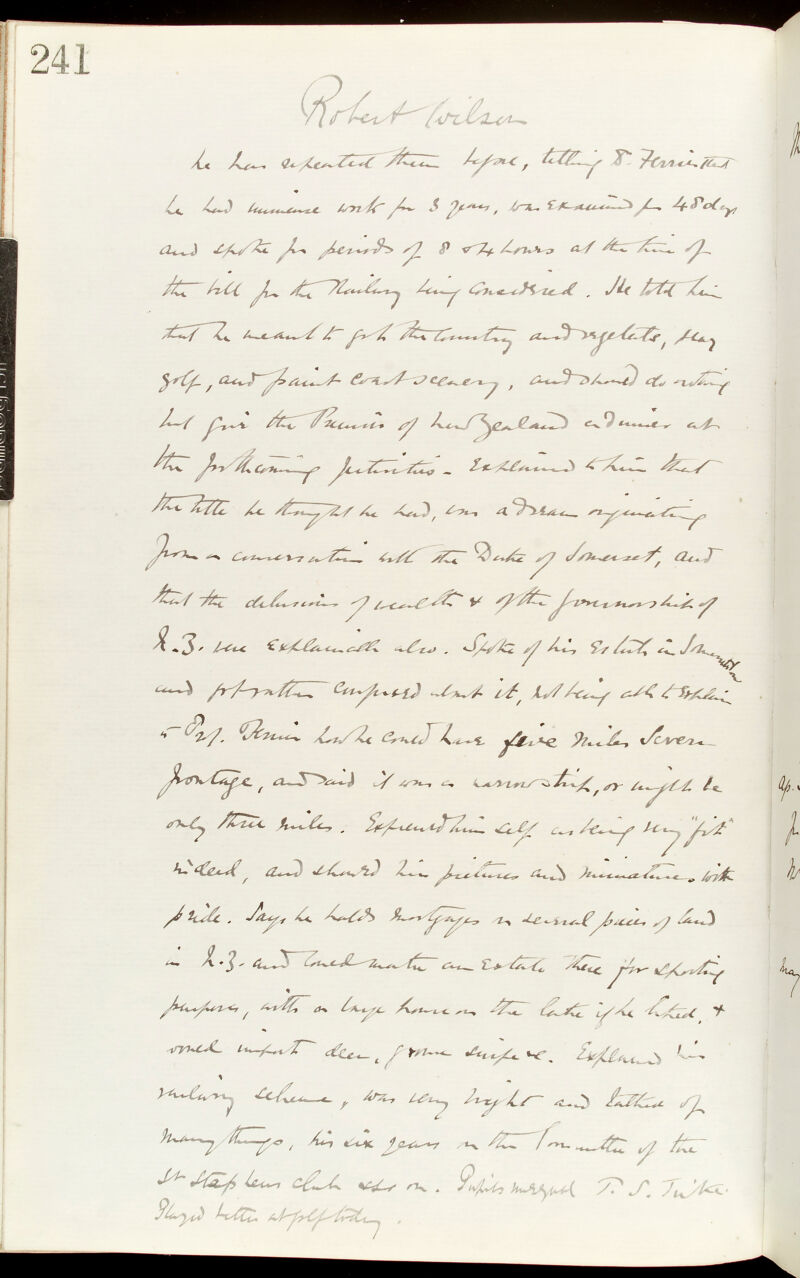 241
Robert Wilson
he has repeated them before, telling Dr. Ferrier that
he had immense work for 3 years, was examined for 48 days
and spoke for periods of 8 & 4 hours at the time of
the bill for the Railway being considered. He told him
that he meant to go to the Country and vegetate, play
golf, and paint coast scenery, and should do nothing
but give the Premier of New Zealand a dinner at
the forthcoming festivities - Explained to him that
the title he thought he had, was a dream originating
from a conversation with the Duke of Somerset, and
that the delusions of wealth & of the Governorship of
N.Z. were explainable also. Spoke of his Estate in Somersetshire
and got rather confused about it, not being able to explain
to Prof. Ferrier how he could have five miles Severn
frontage, and said it was a narrow strip, or might be
only three miles. Expressed himself as being very "fit"
indeed, and showed his pictures and miniatures with
pride. Says he holds mortgages on several pieces of land
in N.Z. and could make an Estate there for sporting
purposes, with a large house on the lake if he liked, &
would import deer, grouse snipe &c. Explained his
railway scheme, was very bright and talked of
many things, his six years on the Committee of the
St Stephens Club & so on. Pupils unequal T. S. Tuke.
Played better at golf today.